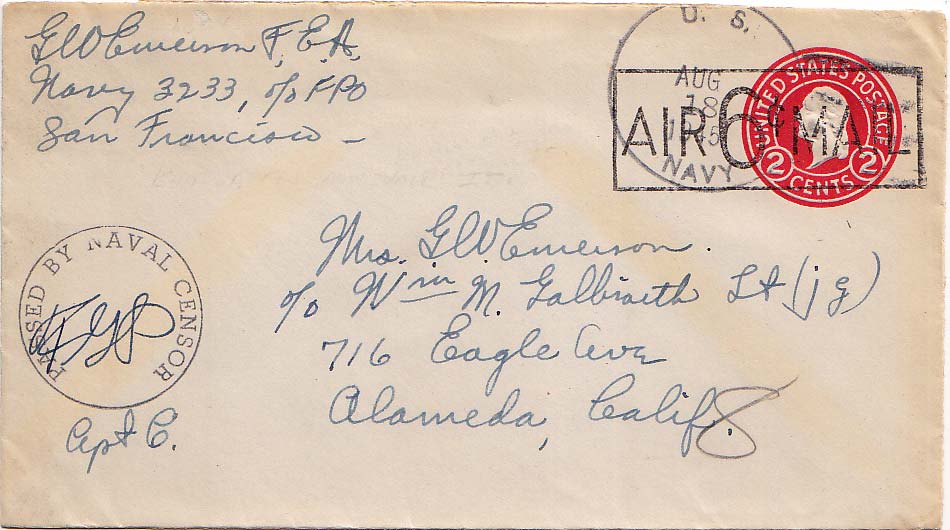 GWEmerson F.E.A.
Navy 3233, c/o FPO
San Francisco —
U. S.
AUG
18
1945
NAVY
AIR 6¢ MAIL
UNITED STATES POSTAGE
2 CENTS 2
PASSED BY NAVAL CENSOR
Mrs. GWEmerson.
c/o Wm M. Galbraith Lt (jg)
716 Eagle Ave
Alameda, Calif.
Apt C.